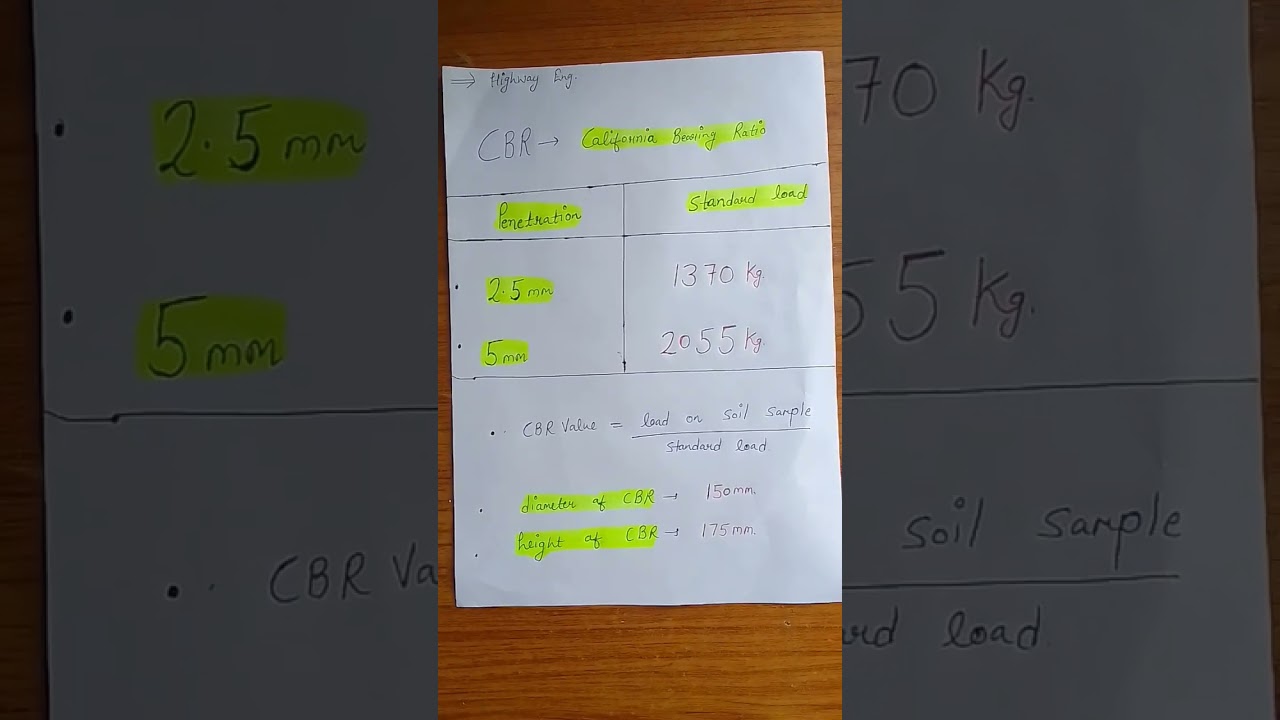 ⇒ Highway Eng.
CBR → California Bearing Ratio
Penetration Standard load
• 2.5 mm 1370 Kg.
• 5 mm 2055 Kg.
•. CBR Value = load on soil sample
standard load
. diameter of CBR → 150 mm.
. height of CBR → 175 mm.
• 2.5 mm
• 5 mm
•. CBR Va
70 Kg.
55 Kg.
soil sample
rd load